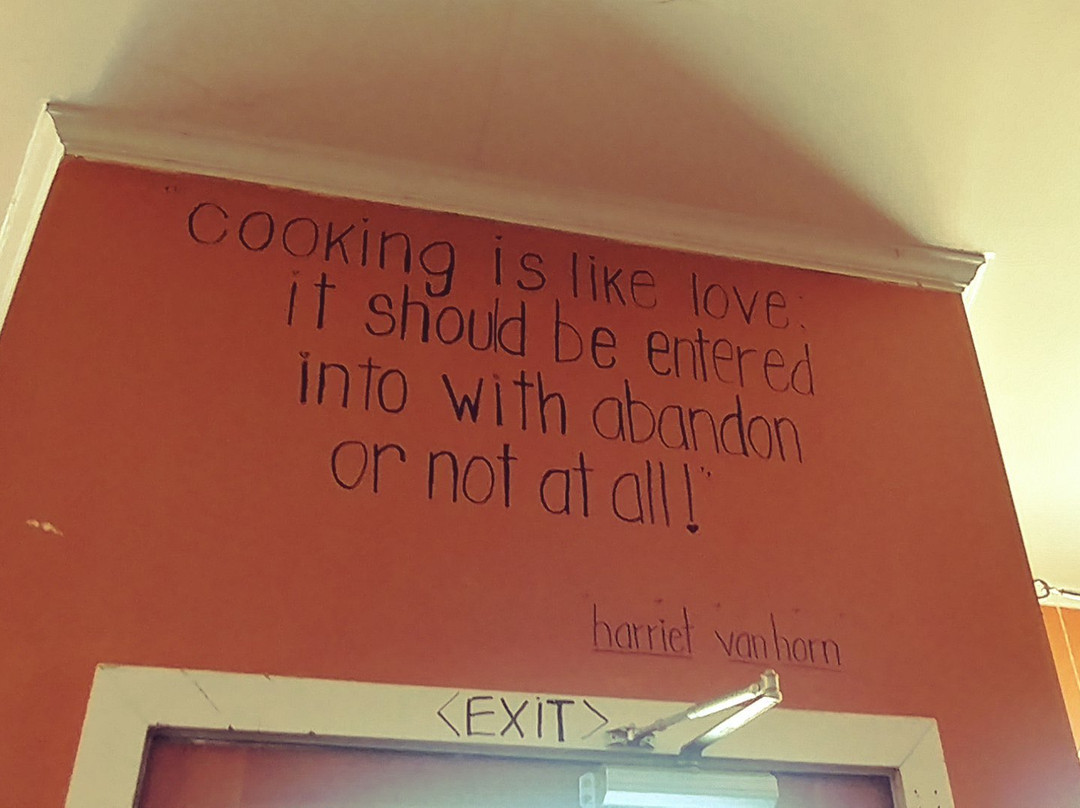 "cooking is like love:
it should be entered
into with abandon
or not at all!"
harriet vanhorn
<EXiT>